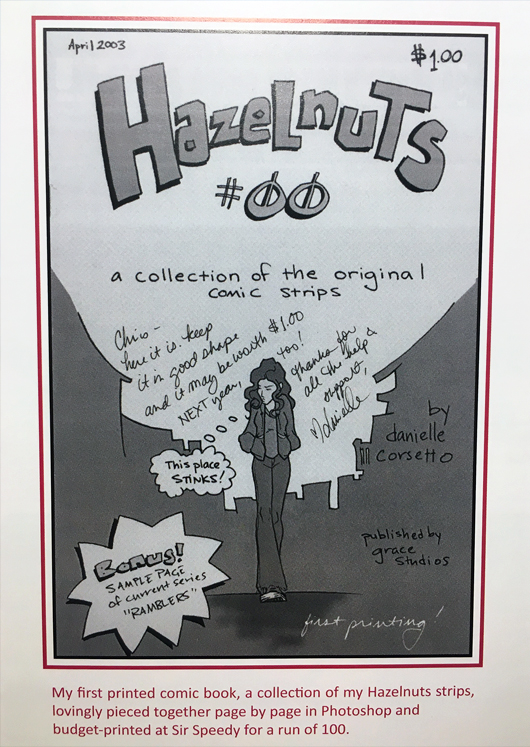 April 2003
$1.00
Hazelnuts
#00
a collection of the original
comic strips
Chris -
here it is. keep
it in good shape
and it may be worth $1.00
NEXT year, too!
thanks for
all the help &
support,
danielle
by
danielle
corsetto
This place
STINKS!
published by
grace
studios
Bonus!
SAMPLE PAGE
of current series
"RAMBLERS"
first printing!
My first printed comic book, a collection of my Hazelnuts strips,
lovingly pieced together page by page in Photoshop and
budget-printed at Sir Speedy for a run of 100.